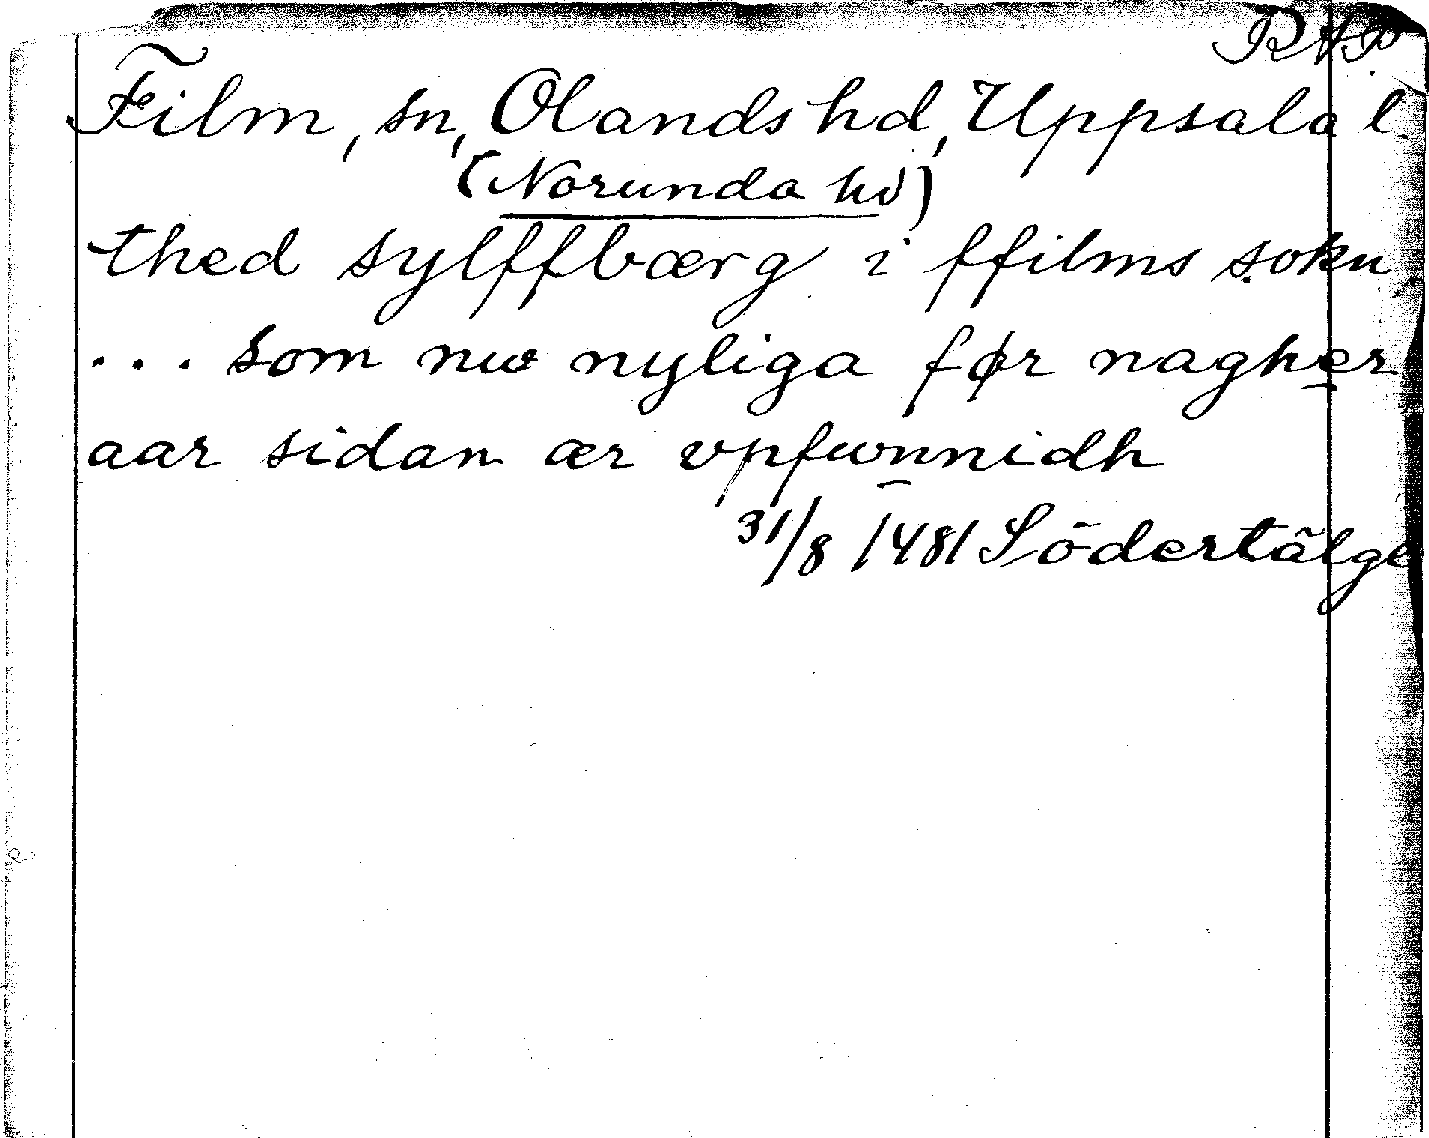 RAP
Film, sn, Olands hd, Uppsala l.
(Norunda hd)
thed sylffbærg i ffilms sokn
... som nw nyliga før nagher
aar sidan ær vpfwnnidh
31/8 1481 Södertälge